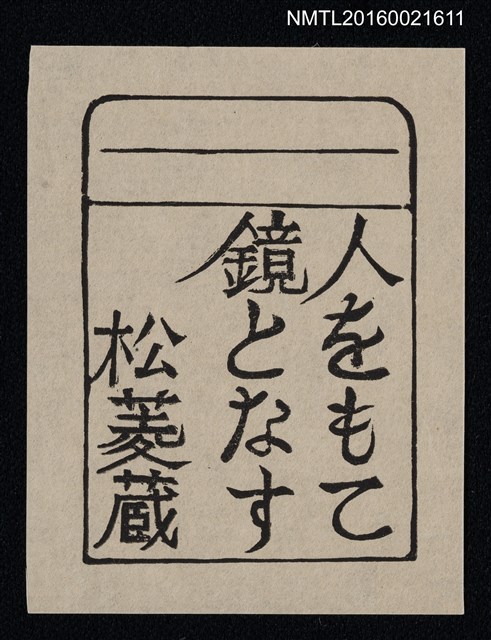 NMTL20160021611
人をもて
鏡となす
松菱蔵